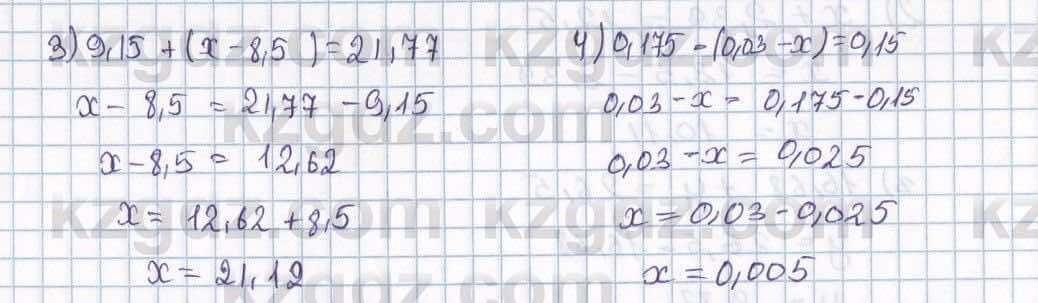 3) 9,15 + (x - 8,5 ) = 21,77
x - 8,5 = 21,77 - 9,15
x - 8,5 = 12,62
x = 12,62 + 8,5
x = 21,12
4) 0,175 - (0,03 - x) = 0,15
0,03 - x = 0,175 - 0,15
0,03 - x = 0,025
x = 0,03 - 0,025
x = 0,005